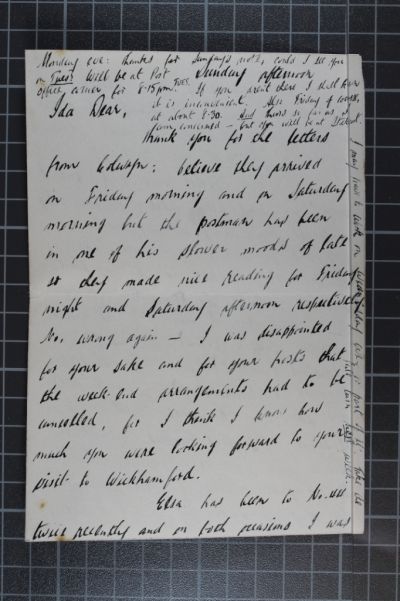 Monday eve: thanks for Sunday's note, could I see you
on Tues? Will be at Post
office corner for 8-15pm. Tues. If you aren't there I shall know
it is inconvenient. Also Friday of course,
at about 8-30. Wed. Thurs so far as
concerned - but you will be at
Sunday afternoon
Ida Dear,
Thank you for the letters
from Colwyn: believe they arrived
on Friday morning and on Saturday
morning but the postman has been
in one of his slower moods of late
so they made nice reading for Friday
night and Saturday afternoon respectively
No. wrong again — I was disappointed
for your sake and for your hosts that
the week-end arrangements had to be
cancelled, for I think I know how
much you were looking forward to your
visit to Wickhamford.
Elsa has been to No.
twice recently and on both occasions I was
I may have to work on Wednesday or part of it.